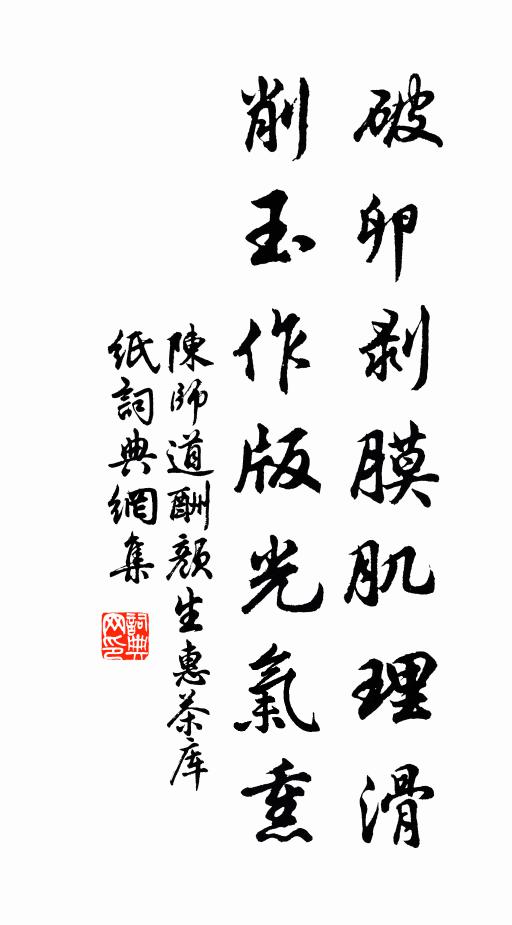 破卵剥膜肌理滑
削玉作版光氣熏
陳師道酬顏生惠茶库
纸詞典網集
詞典
网印